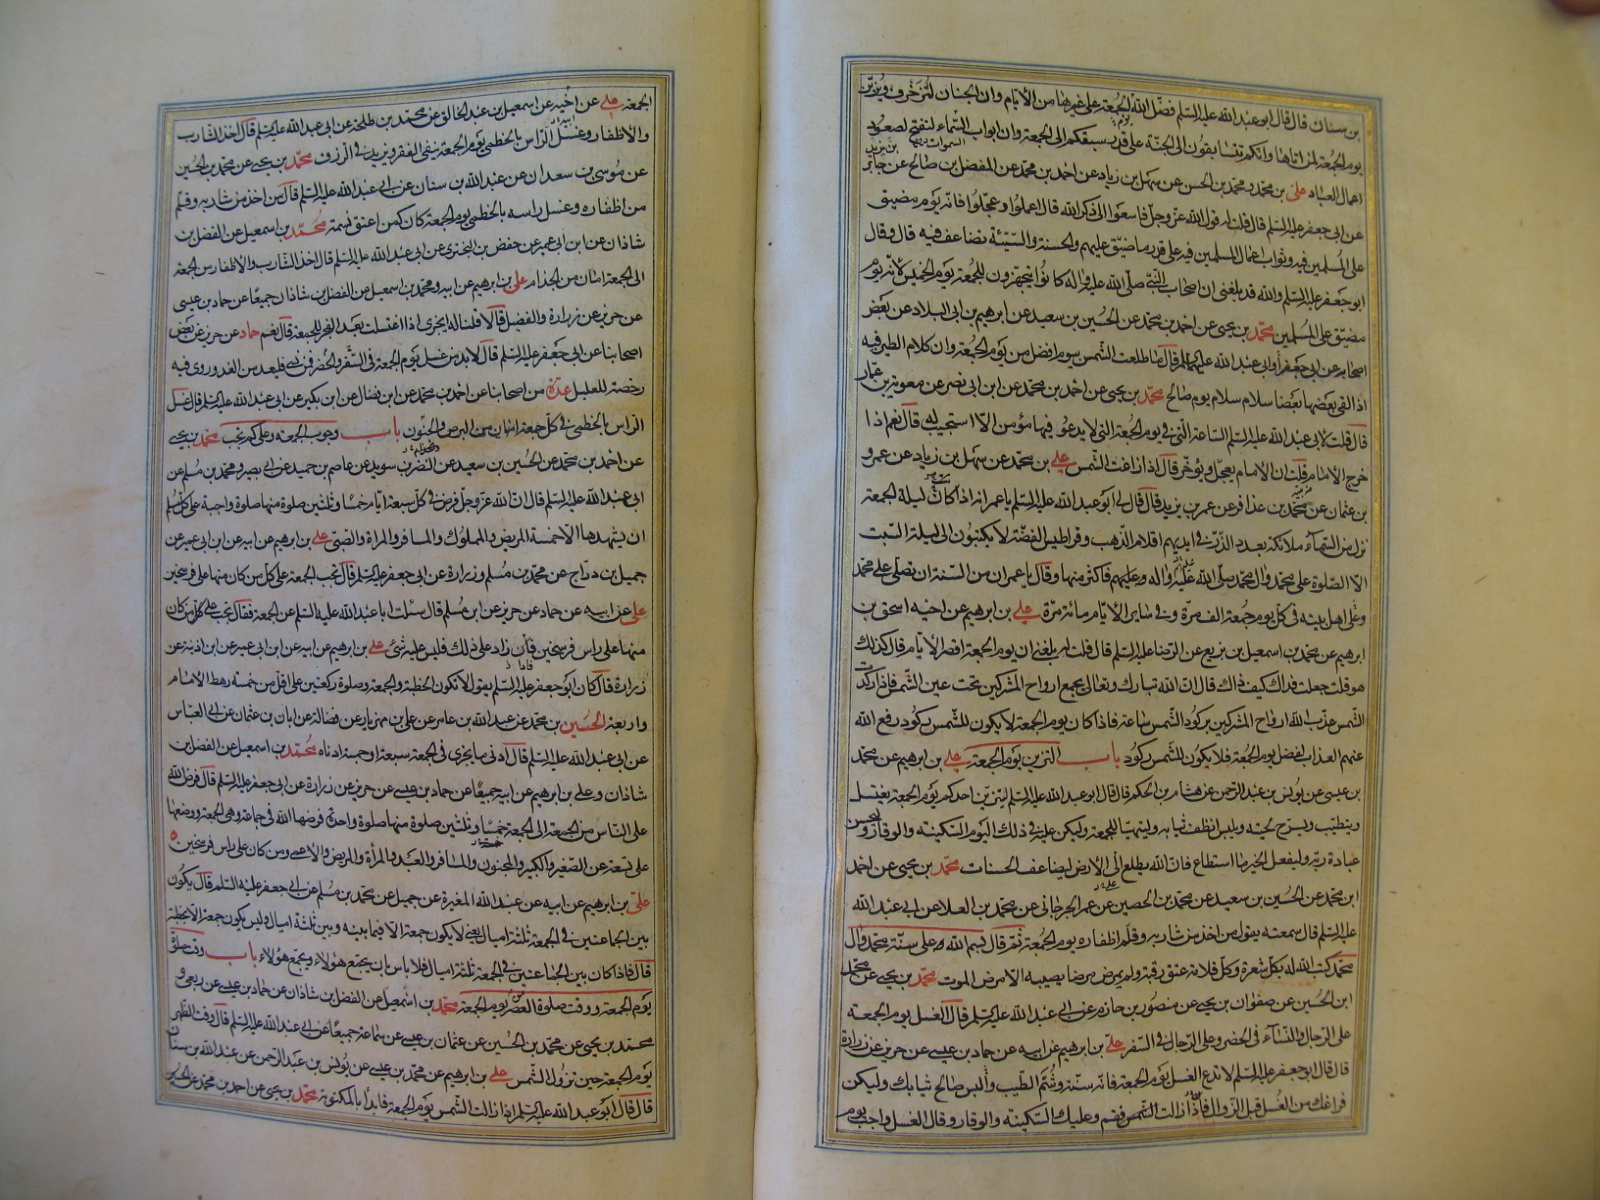 بن سنان قال قال ابو عبد الله عليه السلم فضل الله الجمعة على غيرها من الأيام وان الجنان لتزخرف وتزين
يوم الجمعة لمن اتاها وانكم تتسابقون الى الجنة على قدر سبقكم الى الجمعة وان ابواب السماء لتفتح لصعود
اعمال العباد على بن محمد ومحمد بن الحسن عن سهل بن زياد عن احمد بن محمد عن المفضل بن صالح عن جابر
عن ابى جعفر عليه السلم قال قلت له قول الله عز وجل فاسعوا الى ذكر الله قال اعملوا وعجلوا فانه يوم مضيق
على المسلمين فيه وثواب اعمال المسلمين فيه على قدر ما ضيق عليهم والحسنة والسيئة تضاعف فيه قال وقال
ابو جعفر عليه السلم والله قد بلغنى ان اصحاب النبى صلى الله عليه واله كانوا يتجهزون للجمعة يوم الخميس لانه يوم
مضيق على المسلمين محمد بن يحيى عن احمد بن محمد عن الحسين بن سعيد عن ابرهيم بن ابى البلاد عن بعض
اصحابه عن ابى جعفر او ابى عبد الله عليهما السلم قال ما طلعت الشمس بيوم افضل من يوم الجمعة وان كلام الطير فيه
اذا لقى بعضها بعضا سلام سلام يوم صالح محمد بن يحيى عن احمد بن محمد عن ابن ابى نصر عن معوية بن عمار
قال قلت لابى عبد الله عليه السلم الساعة التى فى يوم الجمعة التى لا يدعو فيها مؤمن الا استجيب له قال نعم اذا
خرج الامام قلت ان الامام يعجل ويؤخر قال اذا زاغت الشمس على بن محمد عن سهل بن زياد عن عمرو
بن عثمان عن محمد بن عذافر عن عمر بن يزيد قال قال لى ابو عبد الله عليه السلم يا عمر انه اذا كان ليلة الجمعة
نزل من السماء ملائكة بعدد الذر فى ايديهم اقلام الذهب وقراطيس الفضة لا يكتبون الى ليلة السبت
الا الصلوة على محمد وال محمد صلى الله عليه واله وعليهم فاكثر منها وقال يا عمر ان من السنة ان تصلى على محمد
وعلى اهل بيته فى كل يوم جمعة الف مرة وفى ساير الأيام مائة مرة على بن ابرهيم عن اخيه اسحق بن
ابرهيم عن محمد بن اسمعيل بن بزيع عن الرضا عليه السلم قال قلت له بلغنى ان يوم الجمعة اقصر الأيام قال كذلك
هو قلت جعلت فداك كيف ذاك قال ان الله تبارك وتعالى يجمع ارواح المشركين تحت عين الشمس فاذا ركدت
الشمس عذب الله ارواح المشركين بركود الشمس ساعة فاذا كان يوم الجمعة لا يكون للشمس ركود رفع الله
عنهم العذاب لفضل يوم الجمعة فلا يكون للشمس ركود باب التزين يوم الجمعة على بن ابرهيم عن محمد
بن عيسى عن يونس بن عبد الرحمن عن هشام بن الحكم قال قال ابو عبد الله عليه السلم ليتزين احدكم يوم الجمعة يغتسل
ويتطيب ويسرح لحيته ويلبس انظف ثيابه وليتهيأ للجمعة وليكن عليه فى ذلك اليوم السكينة والوقار وليحسن
عبادة ربه وليفعل الخير ما استطاع فان الله يطلع الى الأرض ليضاعف الحسنات محمد بن يحيى عن احمد
ابن محمد عن الحسين بن سعيد عن محمد بن الحصين عن عمر الجرجانى عن محمد بن العلا عن ابى عبد الله
عليه السلم قال سمعته يقول من اخذ من شاربه وقلم اظفاره يوم الجمعة ثم قال بسم الله وعلى سنة محمد وال
محمد كتب الله له بكل شعرة وكل قلامة عتق رقبة ولم يمرض مرضا يصيبه الا مرض الموت محمد بن يحيى عن محمد
ابن الحسين عن صفوان بن يحيى عن منصور بن حازم عن ابى عبد الله عليه السلم قال الغسل يوم الجمعة
على الرجال والنساء فى الحضر وعلى الرجال فى السفر على بن ابرهيم عن ابيه عن حماد بن عيسى عن حريز عن زرارة
قال قال ابو جعفر عليه السلم لا تدع الغسل يوم الجمعة فانه سنة وشم الطيب والبس صالح ثيابك وليكن
فراغك من الغسل قبل الزوال فاذا زالت الشمس فقم وعليك السكينة والوقار وقال الغسل واجب يوم
الجمعة على عن اخيه عن اسمعيل بن عبد الخالق عن محمد بن طلحة عن ابى عبد الله عليه السلم قال اخذ الشارب
والأظفار وغسل الراس بالخطمى يوم الجمعة ينفى الفقر ويزيد فى الرزق محمد بن يحيى عن محمد بن الحسين
عن موسى بن سعدان عن عبد الله بن سنان عن ابى عبد الله عليه السلم قال من اخذ من شاربه وقلم
من اظفاره وغسل راسه بالخطمى يوم الجمعة كان كمن اعتق نسمة محمد بن اسمعيل عن الفضل بن
شاذان عن ابن ابى عمير عن حفص بن البخترى عن ابى عبد الله عليه السلم قال اخذ الشارب والأظفار من الجمعة
الى الجمعة امان من الجذام على بن ابرهيم عن ابيه ومحمد بن اسمعيل عن الفضل بن شاذان جميعا عن حماد بن عيسى
عن حريز عن زرارة والفضيل قالا قلنا له ايجزى اذا اغتسلت بعد الفجر للجمعة قال نعم حماد عن حريز عن بعض
اصحابنا عن ابى جعفر عليه السلم قال لا بد من غسل يوم الجمعة فى السفر والحضر فمن نسى فليعد من الغد وروى فيه
رخصة للعليل عدة من اصحابنا عن احمد بن محمد عن ابن فضال عن ابن بكير عن ابى عبد الله عليه السلم قال غسل
الراس بالخطمى فى كل جمعة امان من البرص والجنون باب وجوب الجمعة وعلى كم تجب محمد بن يحيى
عن احمد بن محمد عن الحسين بن سعيد عن النضر بن سويد عن عاصم بن حميد عن ابى بصير ومحمد بن مسلم عن
ابى عبد الله عليه السلم قال ان الله عز وجل فرض فى كل سبعة ايام خمسا وثلثين صلوة منها صلوة واجبة على كل مسلم
ان يشهدها الا خمسة المريض والمملوك والمسافر والمراة والصبى على بن ابرهيم عن ابيه عن ابن ابى عمير عن
جميل بن دراج عن محمد بن مسلم وزرارة عن ابى جعفر عليه السلم قال تجب الجمعة على كل من كان منها على فرسخين
على عن ابيه عن حماد عن حريز عن ابن مسلم قال سئلت ابا عبد الله عليه السلم عن الجمعة فقال تجب على كل من كان
منها على راس فرسخين فان زاد على ذلك فليس عليه شئ على بن ابرهيم عن ابيه عن ابن ابى عمير عن ابن اذينة عن
زرارة قال كان ابو جعفر عليه السلم يقول لا تكون الخطبة والجمعة وصلوة ركعتين على اقل من خمسة رهط الامام
واربعة الحسين بن محمد عن عبد الله بن عامر عن على بن مهزيار عن فضالة عن ابان بن عثمان عن ابى العباس
عن ابى عبد الله عليه السلم قال ادنى ما يجزى فى الجمعة سبعة او خمسة ادناه محمد بن اسمعيل عن الفضل بن
شاذان وعلى بن ابرهيم عن ابيه جميعا عن حماد بن عيسى عن حريز عن زرارة عن ابى جعفر عليه السلم قال فرض الله
على الناس من الجمعة الى الجمعة خمسا وثلثين صلوة منها صلوة واحدة فرضها الله فى جماعة وهى الجمعة ووضعها
على تسعة عن الصغير والكبير والمجنون والمسافر والعبد والمرأة والمريض والاعمى ومن كان على راس فرسخين
على بن ابرهيم عن ابيه عن عبد الله المغيرة عن جميل عن محمد بن مسلم عن ابى جعفر عليه السلم قال يكون
بين الجماعتين فى الجمعة ثلثة اميال يعنى لا يكون جمعة الا فيما بينه وبين ثلثة اميال وليس يكون جمعة الا بخطبة
قال فاذا كان بين الجماعتين فى الجمعة ثلثة اميال فلا باس بان يجتمع هؤلاء ويجتمع هؤلاء باب وقت صلوة
يوم الجمعة ووقت صلوة العصر يوم الجمعة محمد بن اسمعيل عن الفضل بن شاذان عن حماد بن عيسى عن ربعى و
محمد بن يحيى عن محمد بن الحسين عن عثمان بن عيسى عن سماعة جميعا عن ابى عبد الله عليه السلم قال وقت الظهر
يوم الجمعة حين تزول الشمس على بن ابرهيم عن محمد بن عيسى عن يونس بن عبد الرحمن عن عبد الله بن سنان
قال قال ابو عبد الله عليه السلم اذا زالت الشمس يوم الجمعة فابدأ بالمكتوبة محمد بن يحيى عن احمد بن محمد عن الحسين